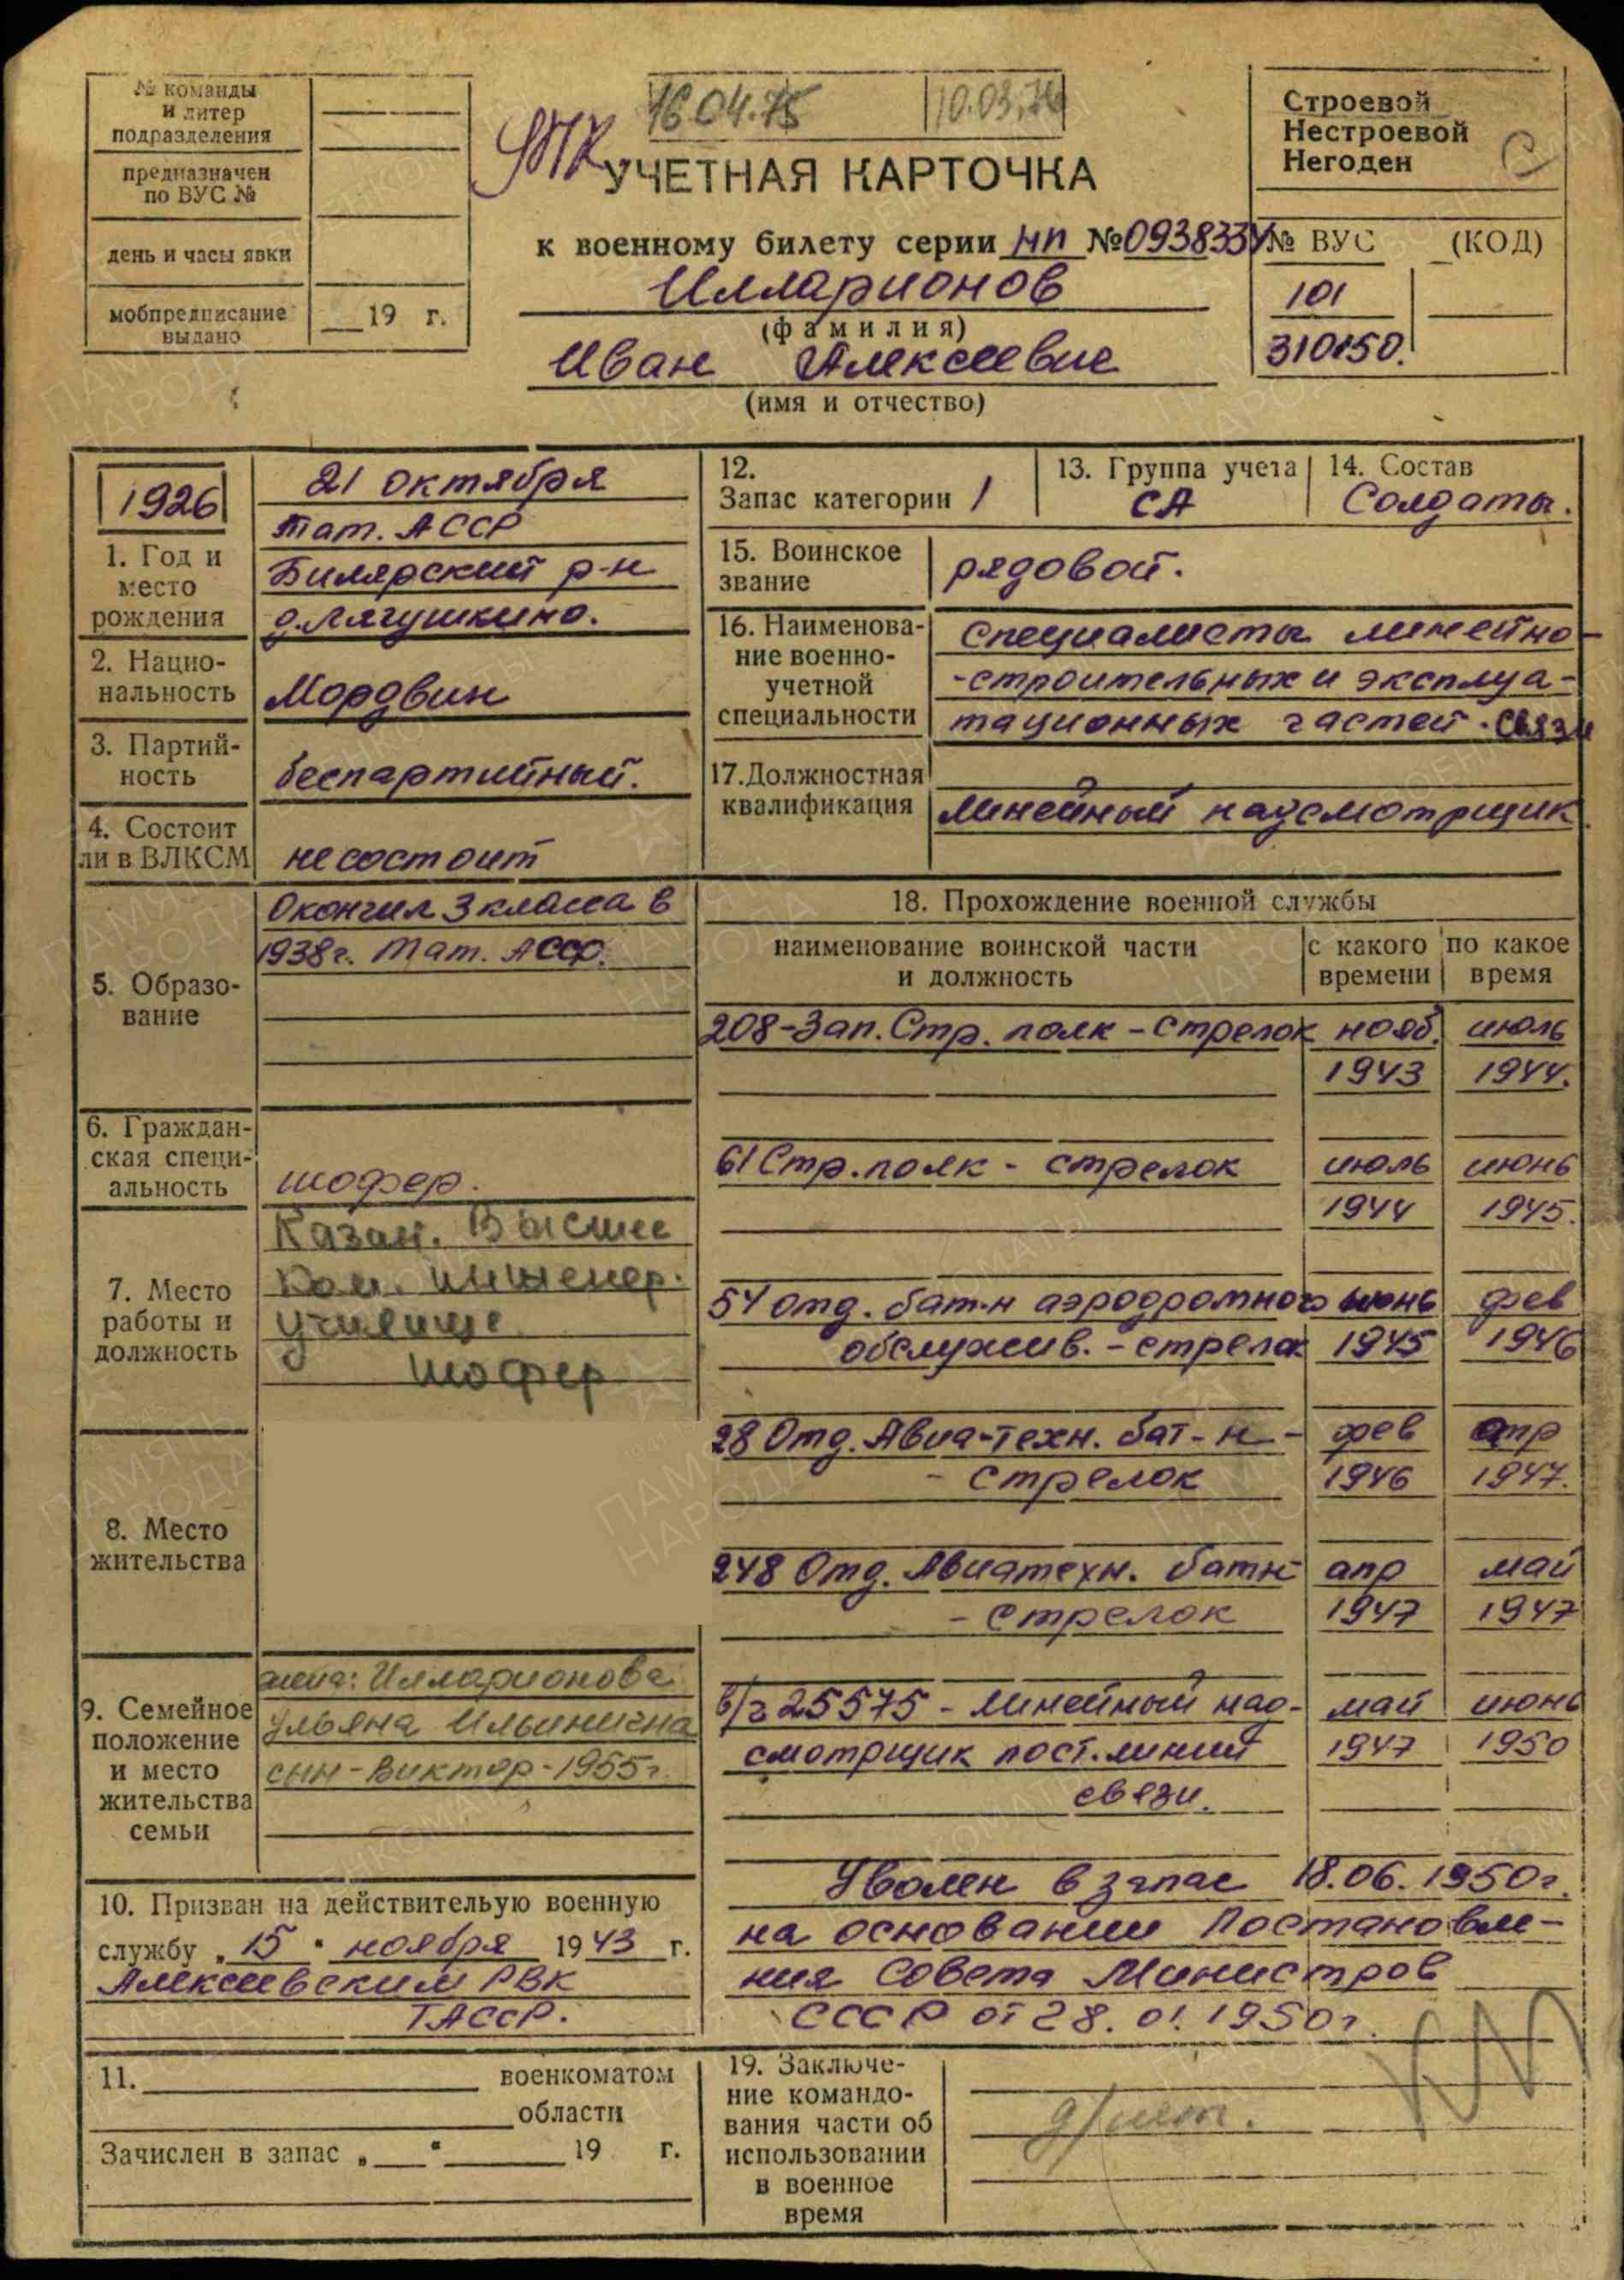 № команды
и литер
подразделения
предназначен
по ВУС №
день и часы явки
мобпредписание
выдано
19 г.
16.04.75
10.03.76
УЧЕТНАЯ КАРТОЧКА
к военному билету серии НП № 0938334
Илларионов
(фамилия)
Иван Алексеевич
(имя и отчество)
Строевой
Нестроевой
Негоден
№ ВУС (КОД)
101
310150.
1926
1. Год и
место
рождения
21 октября
Тат. АССР
Билярский р-н
д. Лягушкино.
2. Нацио-
нальность
Мордвин
3. Партий-
ность
беспартийный.
4. Состоит
ли в ВЛКСМ
не состоит
5. Образо-
вание
Окончил 3 класса в
1938г. Тат. АССР.
6. Граждан-
ская специ-
альность
шофер.
7. Место
работы и
должность
Казан. Высшее
Ком. Инженер.
училище
шофер
8. Место
жительства
9. Семейное
положение
и место
жительства
семьи
жена: Илларионова
Ульяна Ильинична
сын - Виктор - 1955г.
10. Призван на действительую военную
службу „15" ноября 1943 г.
Алексеевским РВК
ТАССР.
11. военкоматом
области
Зачислен в запас „ " 19 г.
12.
Запас категории 1
13. Группа учета
СА
14. Состав
Солдаты.
15. Воинское
звание
рядовой.
16. Наименова-
ние военно-
учетной
специальности
Специалисты линейно-
-строительных и эксплуа-
тационных частей. связи
17. Должностная
квалификация
Линейный надсмотрщик
18. Прохождение военной службы
наименование воинской части
и должность
с какого
времени
по какое
время
208-Зап. Стр. полк - Стрелок нояб. июль
1943 1944.
61 Стр. полк - стрелок июль июнь
1944 1945.
54 Отд. бат-н аэродромного июнь фев
обслужив. - стрелок 1945 1946
28 Отд. Авиа-техн. бат-н - фев апр
- стрелок 1946 1947.
248 Отд. Авиатехн. батн апр май
- стрелок 1947 1947
в/ч 25575 - линейный над- май июнь
смотрщик пост. линий 1947 1950
связи.
Уволен в запас 18.06.1950г.
на основании Постановле-
ния Совета Министров
СССР от 28.01.1950г.
19. Заключе-
ние командо-
вания части об
использовании
в военное
время